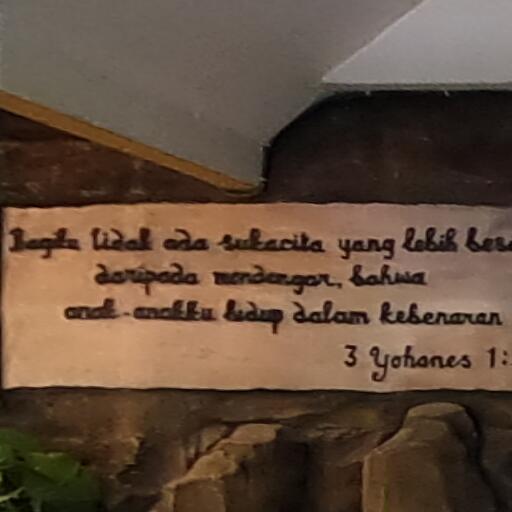 Bagiku tidak ada sukacita yang lebih besa
daripada mendengar, bahwa
anak-anakku hidup dalam kebenaran
3 Yohanes 1: